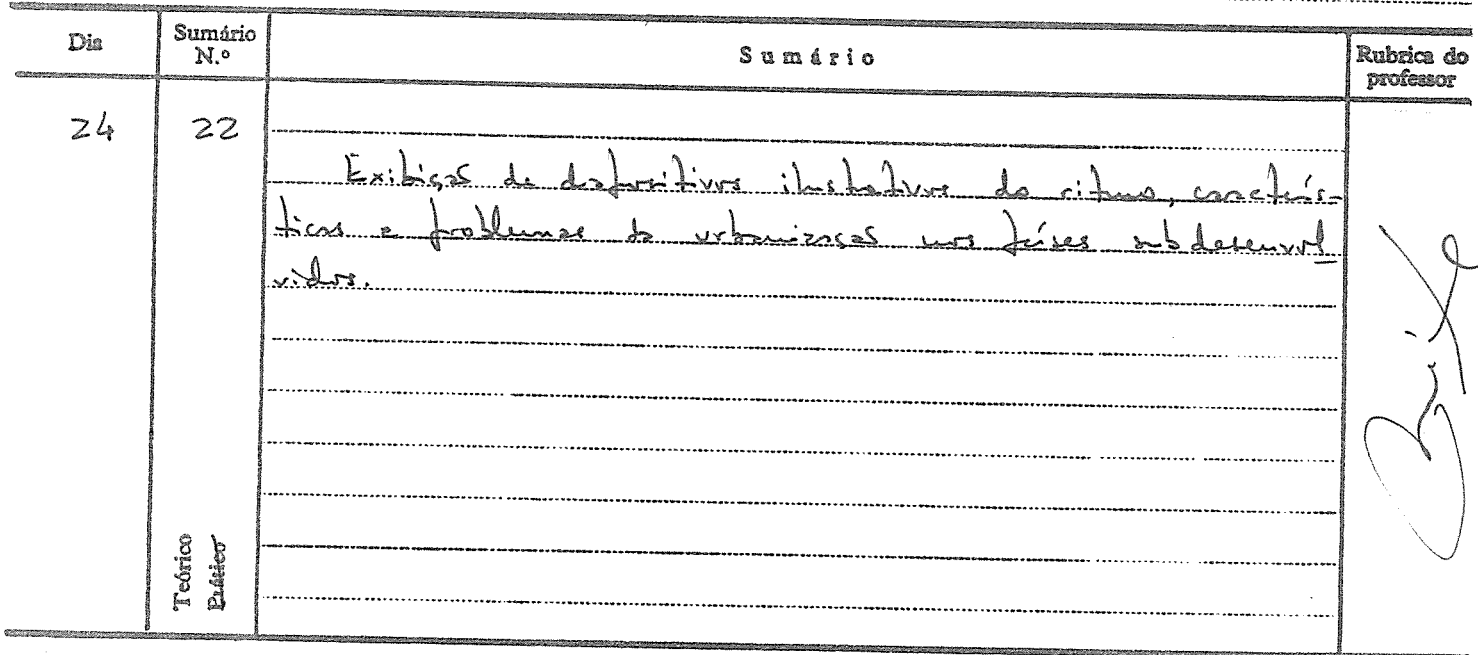 Dia
Sumário N.º
Sumário
Rubrica do professor
24
22
Exibição de diapositivos ilustrativos do ritmo, caracterís-
ticas e problemas da urbanização nos países subdesenvol
vidos.
Teórico
Prático